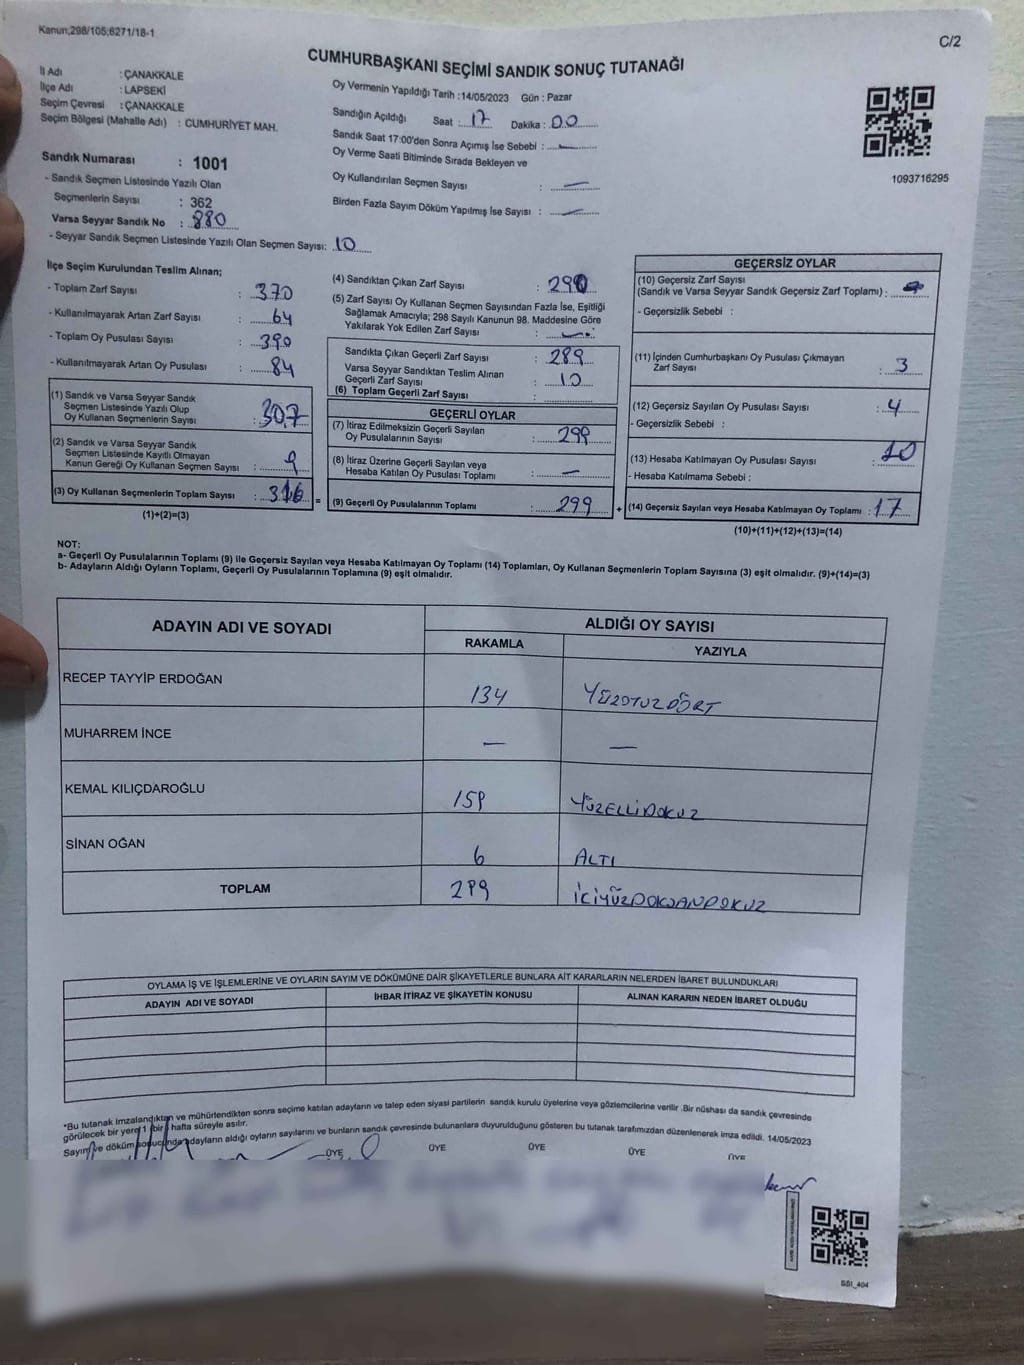 Kanun,298/105;6271/18-1
C/2
CUMHURBAŞKANI SEÇİMİ SANDIK SONUÇ TUTANAĞI
İl Adı : ÇANAKKALE
İlçe Adı : LAPSEKİ
Seçim Çevresi : ÇANAKKALE
Seçim Bölgesi (Mahalle Adı) : CUMHURİYET MAH.
Sandık Numarası : 1001
- Sandık Seçmen Listesinde Yazılı Olan
Seçmenlerin Sayısı : 362
Varsa Seyyar Sandık No : 880
- Seyyar Sandık Seçmen Listesinde Yazılı Olan Seçmen Sayısı: 10
Oy Vermenin Yapıldığı Tarih :14/05/2023 Gün : Pazar
Sandığın Açıldığı Saat : 17 Dakika : 00
Sandık Saat 17:00'den Sonra Açımış İse Sebebi : —
Oy Verme Saati Bitiminde Sırada Bekleyen ve
Oy Kullandırılan Seçmen Sayısı : —
Birden Fazla Sayım Döküm Yapılmış İse Sayısı : —
1093716295
İlçe Seçim Kurulundan Teslim Alınan;
- Toplam Zarf Sayısı : 370
- Kullanılmayarak Artan Zarf Sayısı : 64
- Toplam Oy Pusulası Sayısı : 390
- Kullanılmayarak Artan Oy Pusulası : 84
(1) Sandık ve Varsa Seyyar Sandık
Seçmen Listesinde Yazılı Olup
Oy Kullanan Seçmenlerin Sayısı : 307
(2) Sandık ve Varsa Seyyar Sandık
Seçmen Listesinde Kayıtlı Olmayan
Kanun Gereği Oy Kullanan Seçmen Sayısı : 9
(3) Oy Kullanan Seçmenlerin Toplam Sayısı : 316 =
(1)+(2)=(3)
(4) Sandıktan Çıkan Zarf Sayısı : 290
(5) Zarf Sayısı Oy Kullanan Seçmen Sayısından Fazla İse, Eşitliği
Sağlamak Amacıyla; 298 Sayılı Kanunun 98. Maddesine Göre
Yakılarak Yok Edilen Zarf Sayısı : —
Sandıkta Çıkan Geçerli Zarf Sayısı : 289
Varsa Seyyar Sandıktan Teslim Alınan
Geçerli Zarf Sayısı : 10
(6) Toplam Geçerli Zarf Sayısı :
GEÇERLİ OYLAR
(7) İtiraz Edilmeksizin Geçerli Sayılan
Oy Pusulalarının Sayısı : 299
(8) İtiraz Üzerine Geçerli Sayılan veya
Hesaba Katılan Oy Pusulası Toplamı : —
(9) Geçerli Oy Pusulalarının Toplamı : 299 +
GEÇERSİZ OYLAR
(10) Geçersiz Zarf Sayısı
(Sandık ve Varsa Seyyar Sandık Geçersiz Zarf Toplamı) :
- Geçersizlik Sebebi :
(11) İçinden Cumhurbaşkanı Oy Pusulası Çıkmayan
Zarf Sayısı : 3
(12) Geçersiz Sayılan Oy Pusulası Sayısı : 4
- Geçersizlik Sebebi :
(13) Hesaba Katılmayan Oy Pusulası Sayısı : 10
- Hesaba Katılmama Sebebi :
(14) Geçersiz Sayılan veya Hesaba Katılmayan Oy Toplamı : 17
(10)+(11)+(12)+(13)=(14)
NOT:
a- Geçerli Oy Pusulalarının Toplamı (9) ile Geçersiz Sayılan veya Hesaba Katılmayan Oy Toplamı (14) Toplamları, Oy Kullanan Seçmenlerin Toplam Sayısına (3) eşit olmalıdır. (9)+(14)=(3)
b- Adayların Aldığı Oyların Toplamı, Geçerli Oy Pusulalarının Toplamına (9) eşit olmalıdır.
ADAYIN ADI VE SOYADI ALDIĞI OY SAYISI
RAKAMLA YAZIYLA
RECEP TAYYİP ERDOĞAN 134 YÜZOTUZDÖRT
MUHARREM İNCE — —
KEMAL KILIÇDAROĞLU 159 YÜZELLİDOKUZ
SİNAN OĞAN 6 ALTI
TOPLAM 299 İCİYÜZDOKSANDOKUZ
OYLAMA İŞ VE İŞLEMLERİNE VE OYLARIN SAYIM VE DÖKÜMÜNE DAİR ŞİKAYETLERLE BUNLARA AİT KARARLARIN NELERDEN İBARET BULUNDUKLARI
ADAYIN ADI VE SOYADI İHBAR İTİRAZ VE ŞİKAYETİN KONUSU ALINAN KARARIN NEDEN İBARET OLDUĞU
*Bu tutanak imzalandıktan ve mühürlendikten sonra seçime katılan adayların ve talep eden siyasi partilerin sandık kurulu üyelerine veya gözlemcilerine verilir .Bir nüshası da sandık çevresinde
görülecek bir yere 1 (bir) hafta süreyle asılır.
Sayım ve döküm sonucunda adayların aldığı oyların sayılarını ve bunların sandık çevresinde bulunanlara duyurulduğunu gösteren bu tutanak tarafımızdan düzenlenerek imza edildi. 14/05/2023
ÜYE ÜYE ÜYE ÜYE ÜYE
SSI_404